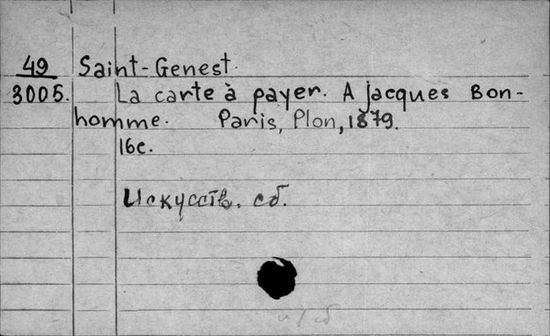 49 Saint-Genest.
3005. La carte à payer. A Jacques Bon-
homme. Paris, Plon, 1879.
16с.
Искусств. сб.